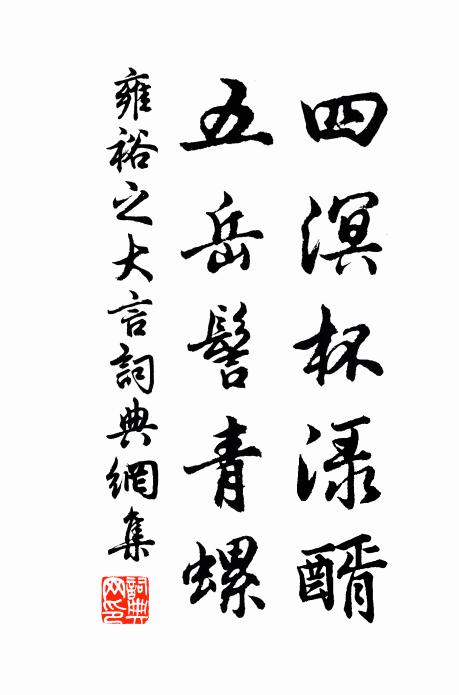 四溟杯渌醑
五岳髻青螺
雍裕之大言詞典網集
詞典
网印